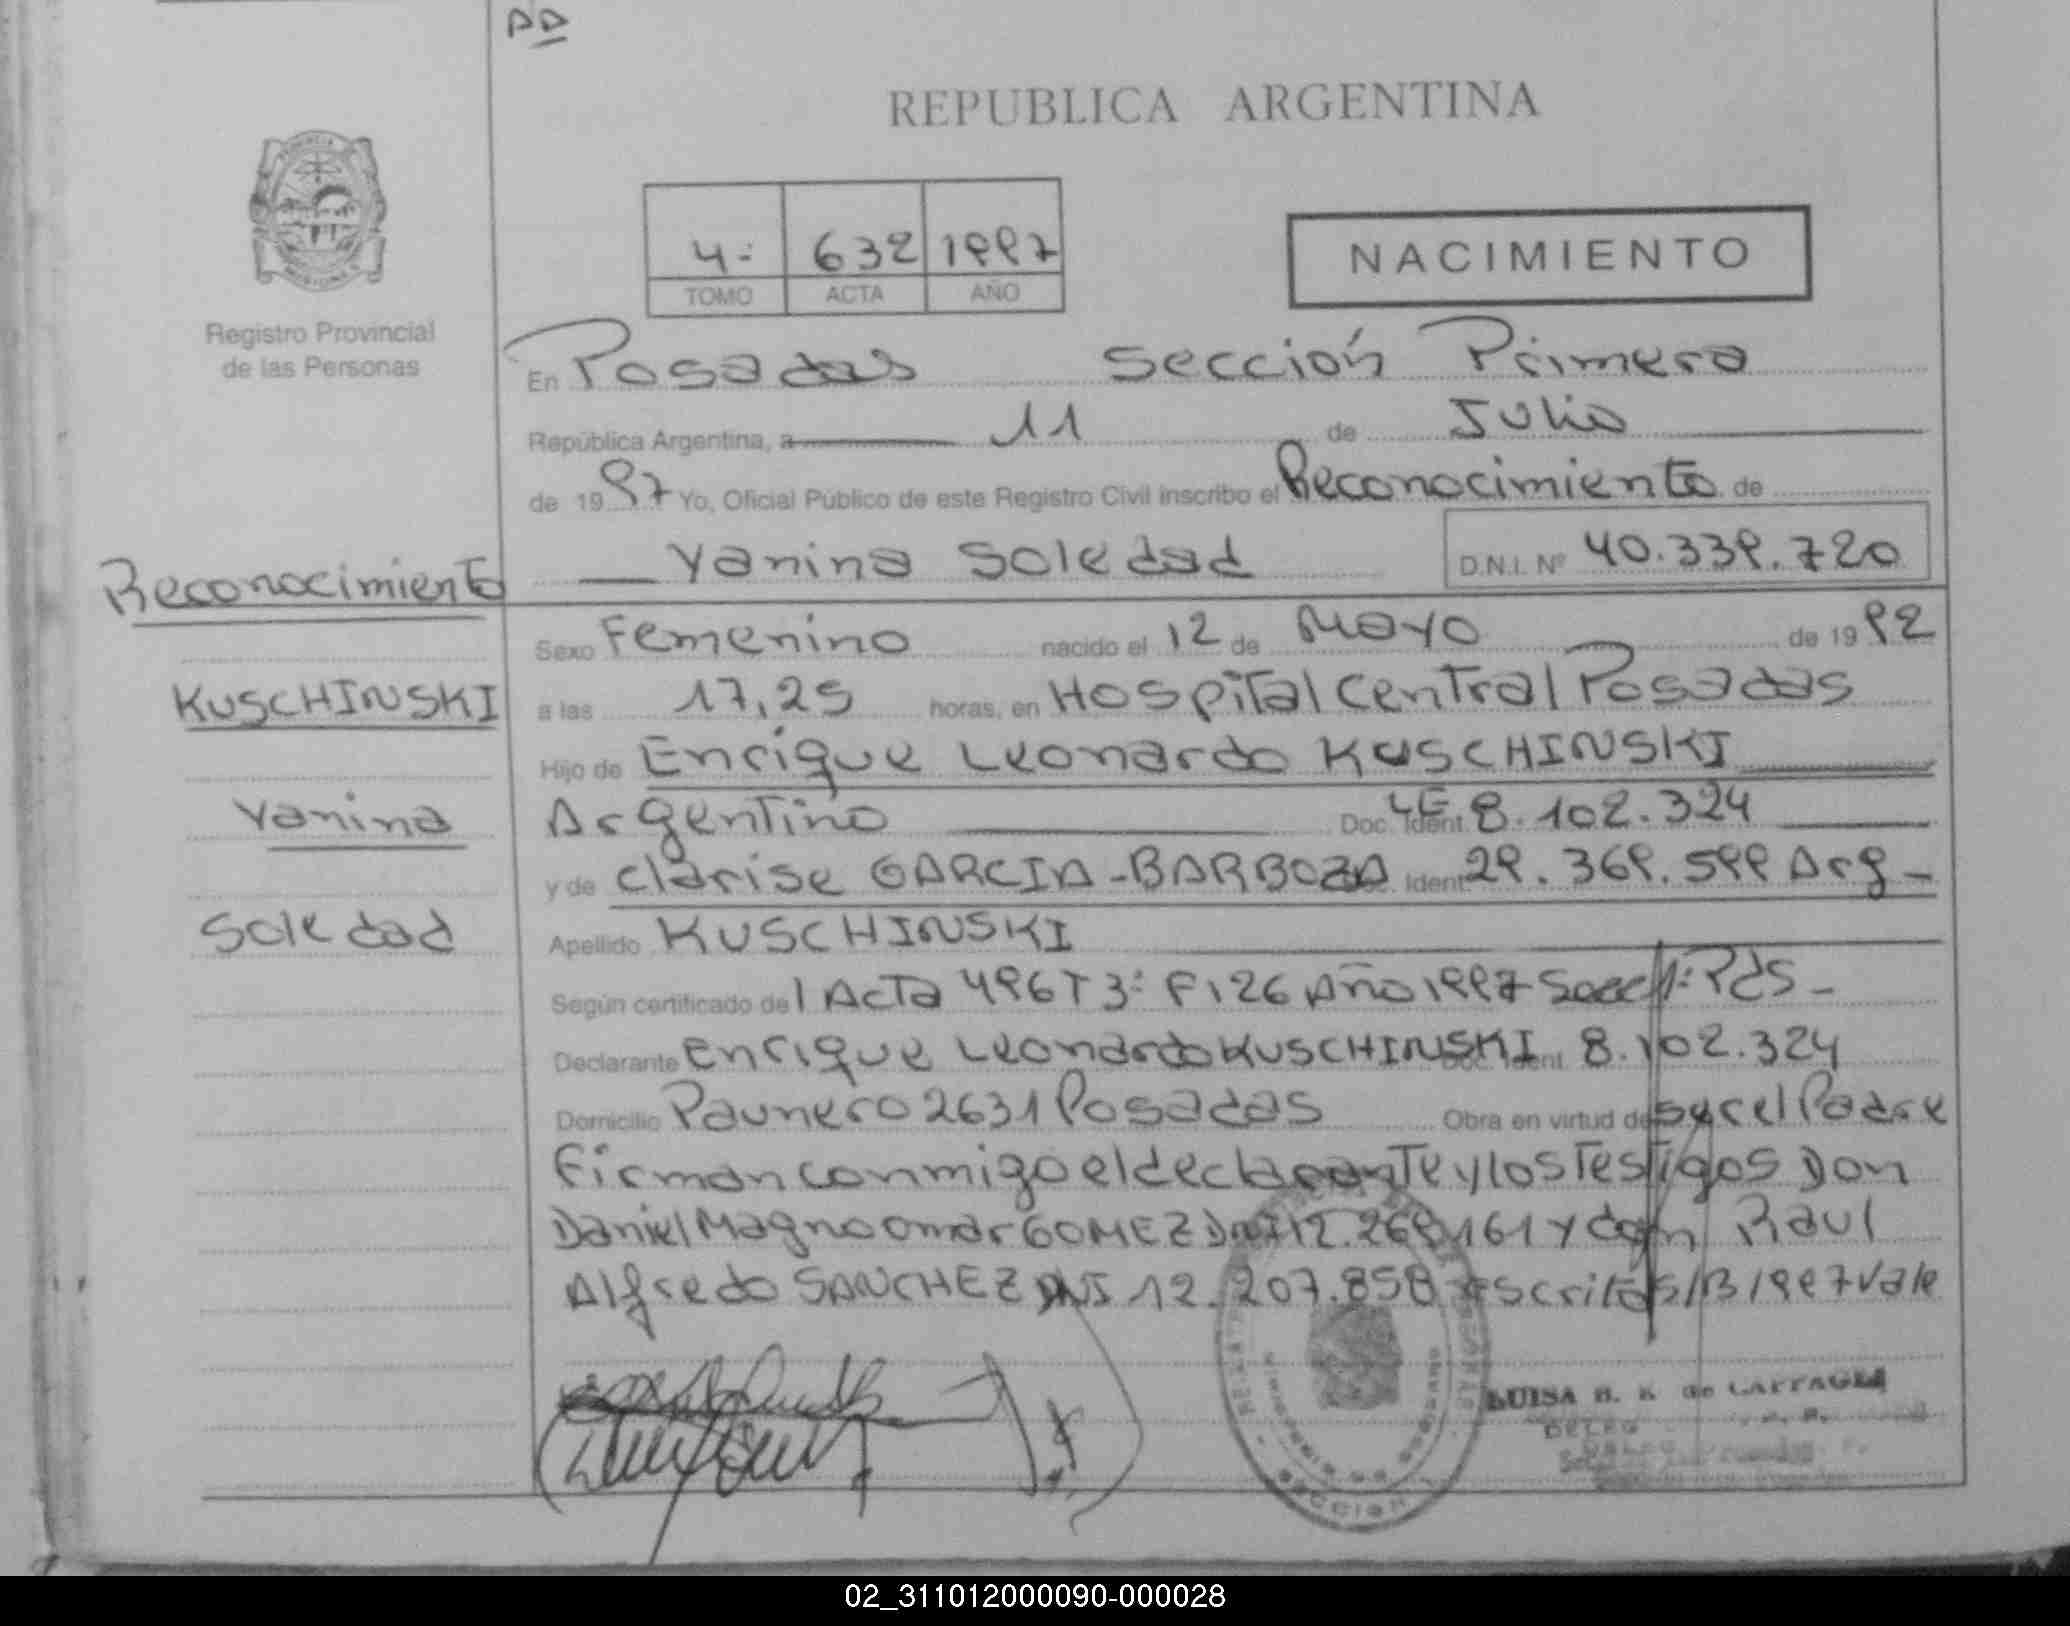 DD
REPUBLICA ARGENTINA
4: 632 1997
TOMO ACTA AÑO
NACIMIENTO
Registro Provincial
de las Personas
En Posadas Sección Primera
República Argentina, a 11 de Julio
de 1997 Yo, Oficial Público de este Registro Civil inscribo el Reconocimiento de
Yanina Soledad D.N.I. Nº 40.339.720
Reconocimiento
KUSCHINSKI
Yanina
Soledad
Sexo Femenino nacido el 12 de Mayo de 1992
a las 17,25 horas, en Hospital Central Posadas
Hijo de Enrique Leonardo KUSCHINSKI
Argentino Doc. Ident. LE 8.102.324
y de Clarise GARCIA-BARBOZA Ident. 29.369.599 Arg-
Apellido KUSCHINSKI
Según certificado del Acta 496 T 3: F 126 Año 1997 1: Pds-
Declarante Enrique Leonardo KUSCHINSKI Doc. Ident 8.102.324
Domicilio Paunero 2631 Posadas Obra en virtud de ser el Padre
Firman conmigo el declarante y los Testigos Don
Daniel Magno Omar GOMEZ DNI 12.269.161 y don Raul
Alfredo SANCHEZ DNI 12.207.858 escritas/B/1997 Vale
LUISA B. K de
DELEG
SECCION 1
02_311012000090-000028